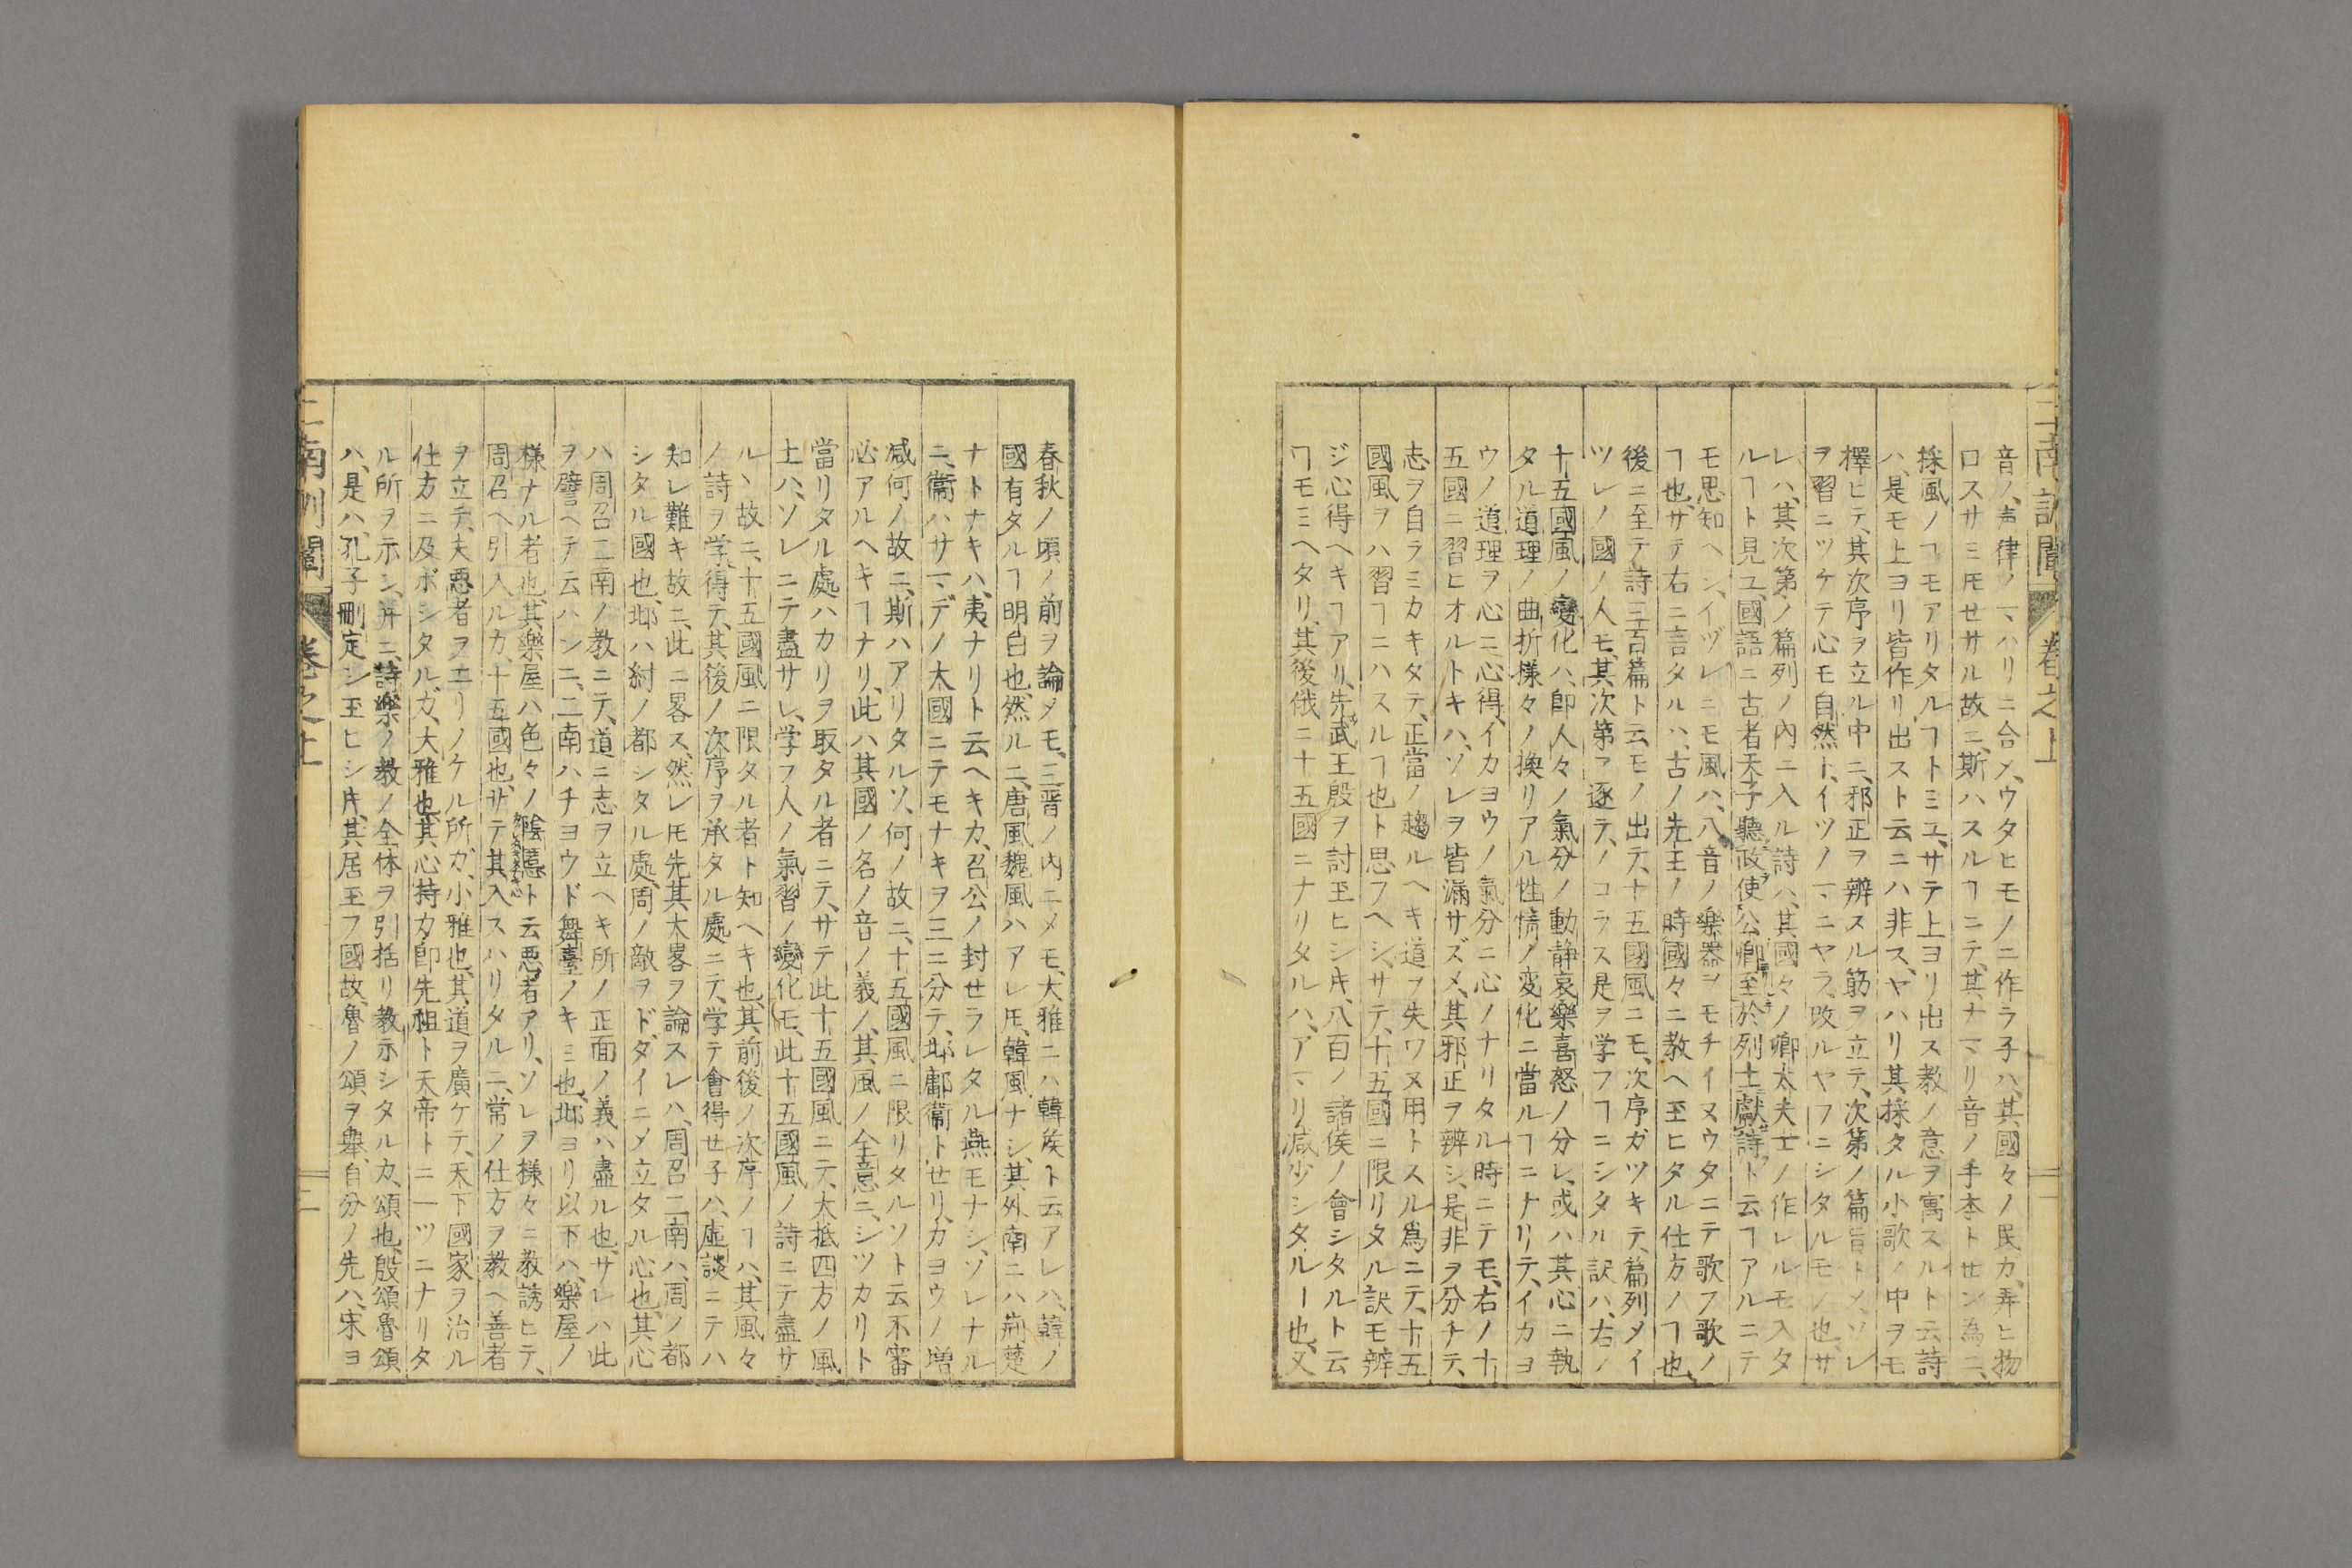 二南訓闡 卷之上 二
音ノ、声律ノ︀マハリニ合〆、ウタヒモノニ作ラ子ハ、其國々ノ民カ、弄ヒ物
ロスサミモせサル故ニ、斯ハスルヿニテ、其ナマリ音ノ手本トせン為ニ、
採風ノヿモアリタルヿトミユ、サテ上ヨリ出ス教ノ意ヲ寓スルト云詩
ハ、是モ上ヨリ皆作リ出スト云ニハ非ス、ヤハリ其採タル小歌ノ中ヲモ
擇ヒテ、其次序ヲ立ル中ニ、邪正ヲ辨スル筋ヲ立テ、次第ノ篇旨ト〆、ソレ
ヲ習ニツケテ心モ自然ト、イツノマニヤラ、改ルヤフニシタルモノ也、サ
レハ、其次第ノ篇列ノ内ニ入ル詩ハ、其國々ノ卿太夫士ノ作レルモ入タ
ルヿト見ユ、國語ニ古者天子聽政使公卿至於列士獻詩ト云ヿアルニテ
モ思知ヘシ、イヅレニモ風ハ、八音ノ樂器ヲモチイヌウタニテ歌フ歌ノ
ヿ也、サテ右ニ言タルハ、古ノ先王ノ時國々ニ教ヘ玉ヒタル仕方ノヿ也、
後ニ至テ詩三百篇ト云モノ出テ、十五國風ニモ、次序ガツキテ、篇列〆イ
ツレノ國ノ人モ、其次第ヲ逐テ、ノコラス是ヲ学フヿニシタル訳ハ、右ノ
十五國風ノ變化ハ、即人々ノ氣分ノ動静哀樂喜怒ノ分レ、或ハ其心ニ執
タル道理ノ曲折様々ノ換リアル性情ノ変化ニ當ルヿニナリテ、イカヨ
ウノ道理ヲ心ニ心得、イカヨウノ氣分ニ心ノナリタル時ニテモ、右ノ十
五國ニ習ヒオルトキハ、ソレヲ皆漏サズ〆、其邪正ヲ辨シ、是非ヲ分チテ、
志ヲ自ラミカキタテ、正當ノ趨ルヘキ道ヲ失ワヌ用トスル爲ニテ、十五
國風ヲハ習ヿニハスルヿ也ト思フヘシ、サテ、十五國ニ限リタル訳モ辨
ジ心得ヘキヿアリ、先武王殷ヲ討玉ヒシ𪜈、八百ノ諸侯ノ會シタルト云
ヿモミヘタリ、其後俄ニ十五國ニナリタルハ、アマリ減少シタルー也、又
春秋ノ頃ノ前ヲ論〆モ、三晋ノ内ニ〆モ、大雅ニハ韓侯ト云アレハ、韓ノ
國有タルヿ明白也、然ルニ、唐風魏風ハアレ𪜈、韓風ナシ、其外南ニハ荊楚
ナトナキハ、夷ナリト云ヘキカ、召公ノ封せラレタル燕モナシ、ソレナル
ニ、衞ハサマデノ大國ニテモナキヲ三ニ分テ、邶鄘衞トせリ、カヨウノ増
減何ノ故ニ、斯ハアリタルソ、何ノ故ニ、十五國風ニ限リタルソト云不審
必アルヘキヿナリ、此ハ其國ノ名ノ音ノ義ノ、其風ノ全意ニ、シツカリト
當リタル處ハカリヲ取タル者ニテ、サテ此十五國風ニテ、大抵四方ノ風
土ハ、ソレニテ盡サレ、学フ人ノ氣習ノ變化モ、此十五國風ノ詩ニテ盡サ
ルヽ故ニ、十五國風ニ限タル者ト知ヘキ也、其前後ノ次序ノヿハ、其風々
ノ詩ヲ学得テ、其後ノ次序ヲ承タル處ニテ、学テ會得せ子ハ、虚談ニテハ
知レ難キ故ニ、此ニ畧ス、然レ𪜈先其大畧ヲ論スレハ、周召二南ハ、周ノ都
シタル國也、邶ハ紂ノ都シタル處、周ノ敵ヲド、ダイニ〆立タル心也、其心
ハ周召二南ノ教ニテ、道ニ志ヲ立ヘキ所ノ正面ノ義ハ盡ル也、サレハ此
ヲ譬ヘテ云ハンニ、二南ハチヨウド舞臺ノキミ也、邶ヨリ以下ハ、樂屋ノ
様ナル者也、其樂屋ハ色々ノ陰慝ト云悪者アリ、ソレヲ様々ニ教誘ヒテ、
周召ヘ引入ルカ、十五國也、サテ其入スハリタルニ、常ノ仕方ヲ教ヘ善者
ヲ立テ、夫悪者ヲエリノケル所ガ、小雅也、其道ヲ廣ケテ、天下國家ヲ治ル
仕方ニ及ボシタルガ、大雅也、其心持カ即先祖ト天帝トニ一ツニナリタ
ル所ヲ示シ、并ニ、詩樂ノ教ノ全体ヲ引括リ教示シタルカ、頌也、殷頌魯頌
ハ、是ハ、孔子刪定シ玉ヒシ𪜈、其居玉フ國故、魯ノ頌ヲ舉、自分ノ先ハ、宋ヨ
二南訓闡 卷之上 二